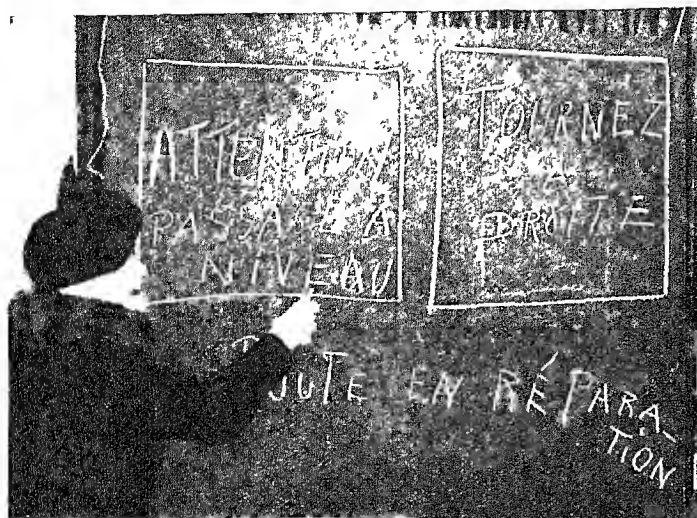 ATTENTION
PASSAGE À
NIVEAU
TOURNEZ
À
DROITE
ROUTE EN RÉPARA-
TION